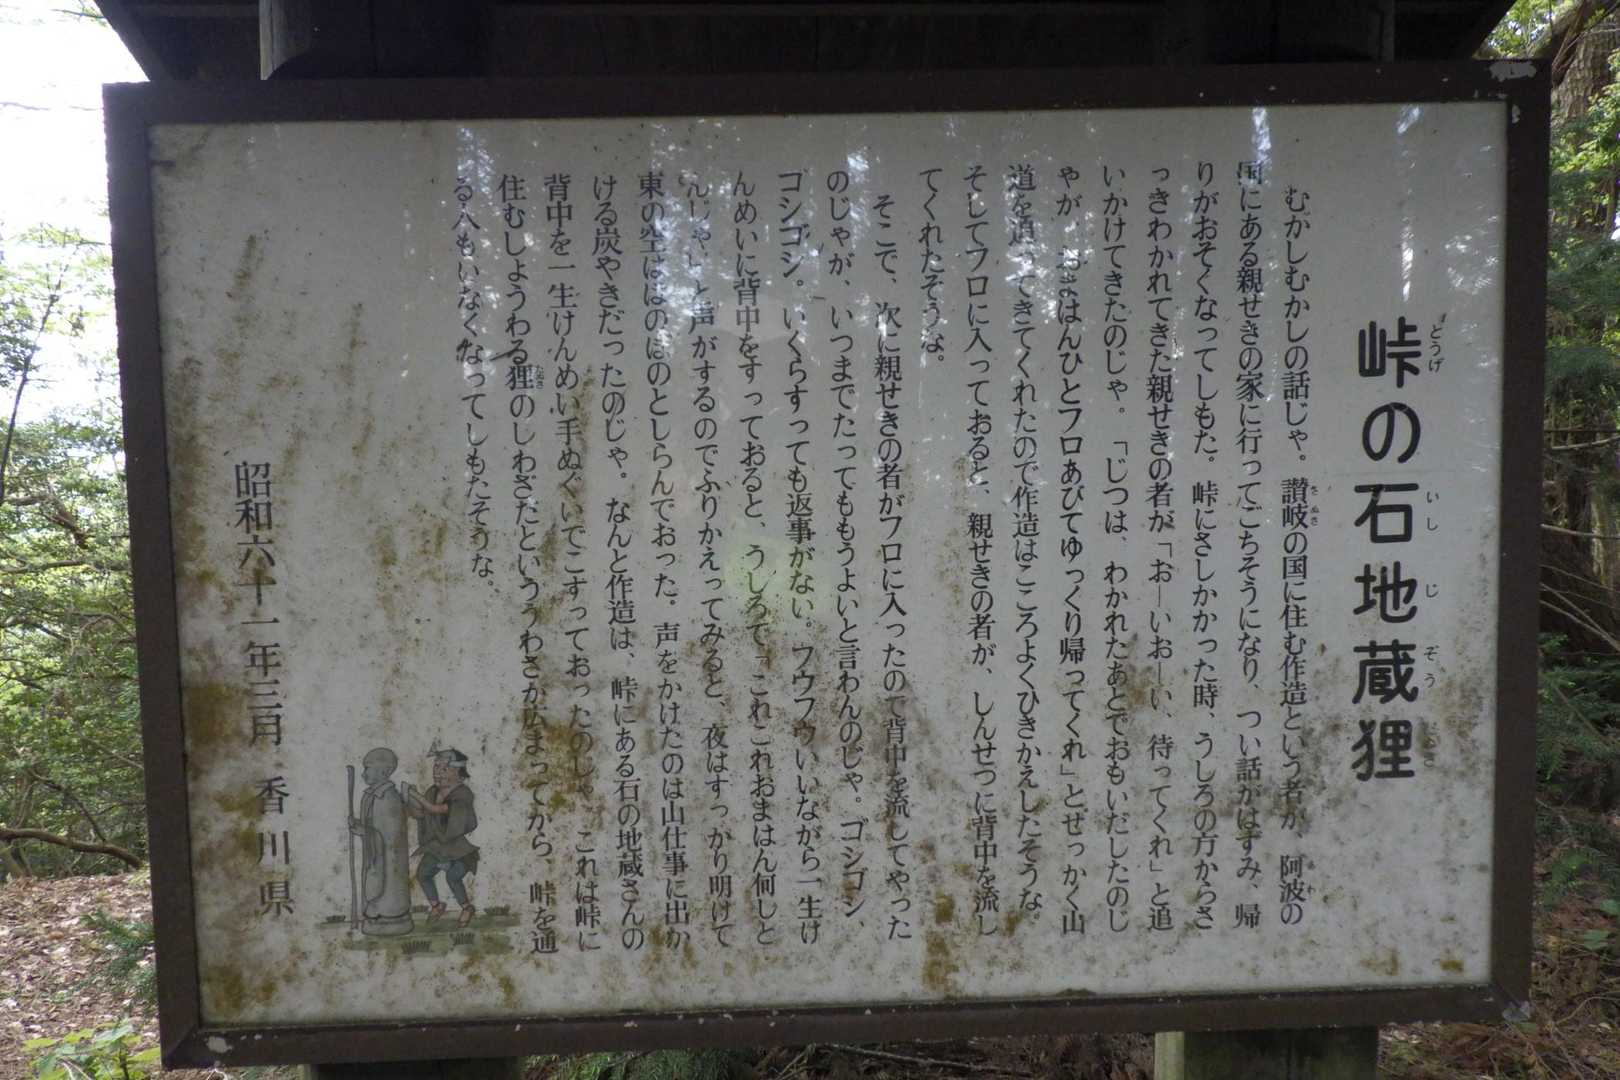 峠の石地蔵狸
むかしむかしの話じゃ。讃岐の国に住む作造という者が、阿波の
国にある親せきの家に行ってごちそうになり、つい話がはずみ、帰
りがおそくなってしもた。峠にさしかかった時、うしろの方からさ
っきわかれてきた親せきの者が「おーいおーい、待ってくれ」と追
いかけてきたのじゃ。「じつは、わかれたあとでおもいだしたのじ
ゃが、おまはんひとフロあびてゆっくり帰ってくれ」とせっかく山
道を追ってきてくれたので作造はこころよくひきかえしたそうな。
そしてフロに入っておると、親せきの者が、しんせつに背中を流し
てくれたそうな。
そこで、次に親せきの者がフロに入ったので背中を流してやった
のじゃが、いつまでたってももうよいと言わんのじゃ。ゴシゴシ、
ゴシゴシ。いくらすっても返事がない。フウフウいいながら一生け
んめいに背中をすっておると、うしろで「これこれおまはん何しと
んじゃい」と声がするのでふりかえってみると、夜はすっかり明けて
東の空はほのぼのとしらんでおった。声をかけたのは山仕事に出か
ける炭やきだったのじゃ。なんと作造は、峠にある石の地蔵さんの
背中を一生けんめい手ぬぐいでこすっておったのじゃ。これは峠に
住むしょうわる狸のしわざだといううわさが広まってから、峠を通
る人もいなくなってしもたそうな。
昭和六十一年三月 香川県